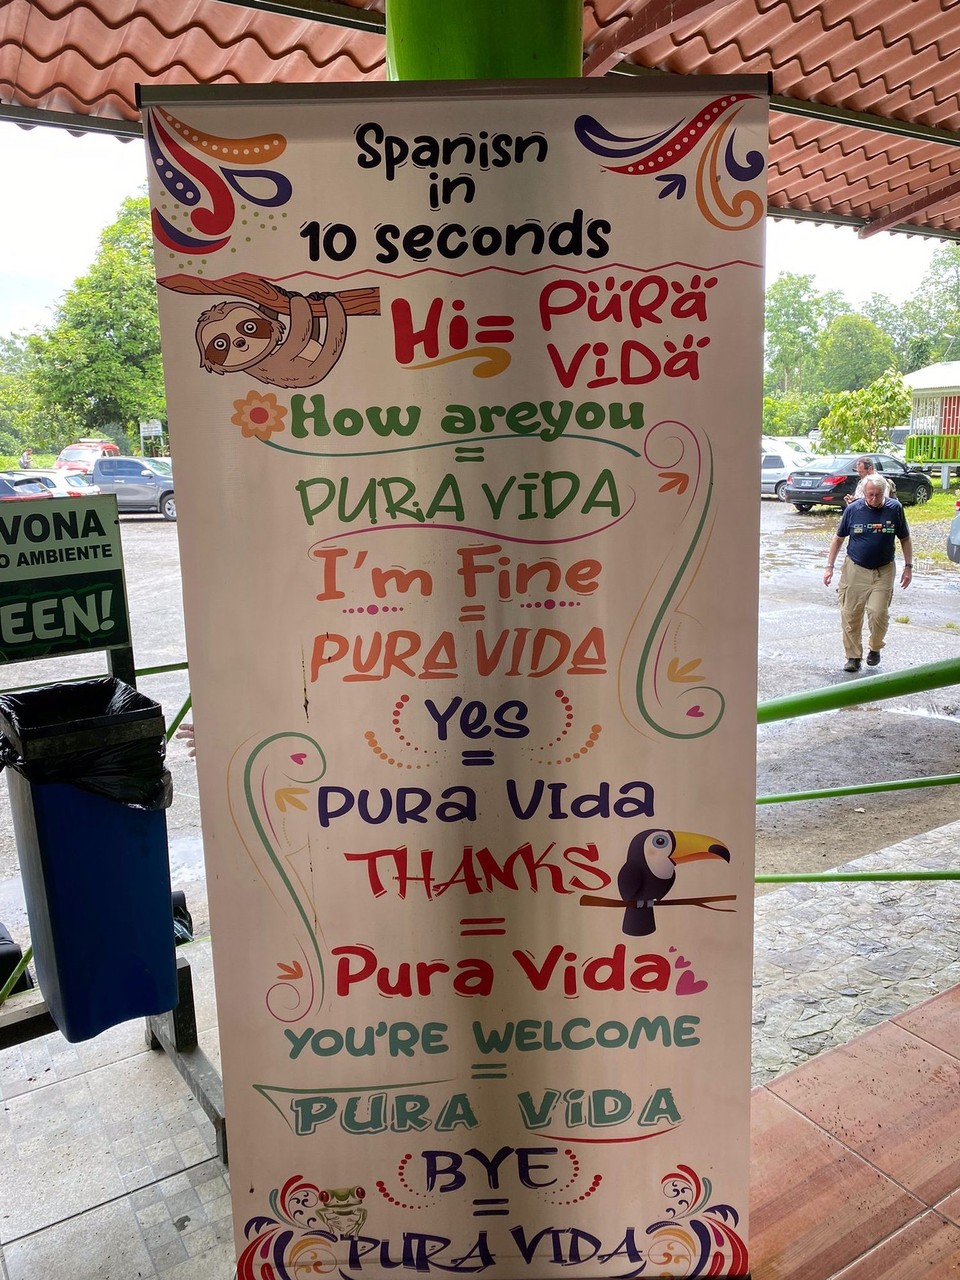 Spanisn
in
10 seconds
Hi= PURA
VIDA
How areyou
=
PURA VIDA
I'm Fine
=
PURA VIDA
Yes
=
PURA VIda
THANKS
=
Pura Vida
YOU'RE WELCOME
=
PURA VIDA
BYE
=
PURA VIDA
VONA
O AMBIENTE
EEN!